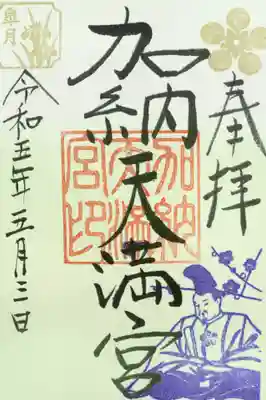 奉拝
加納天満宮
加納天満宮印
令和五年五月三日
皐月